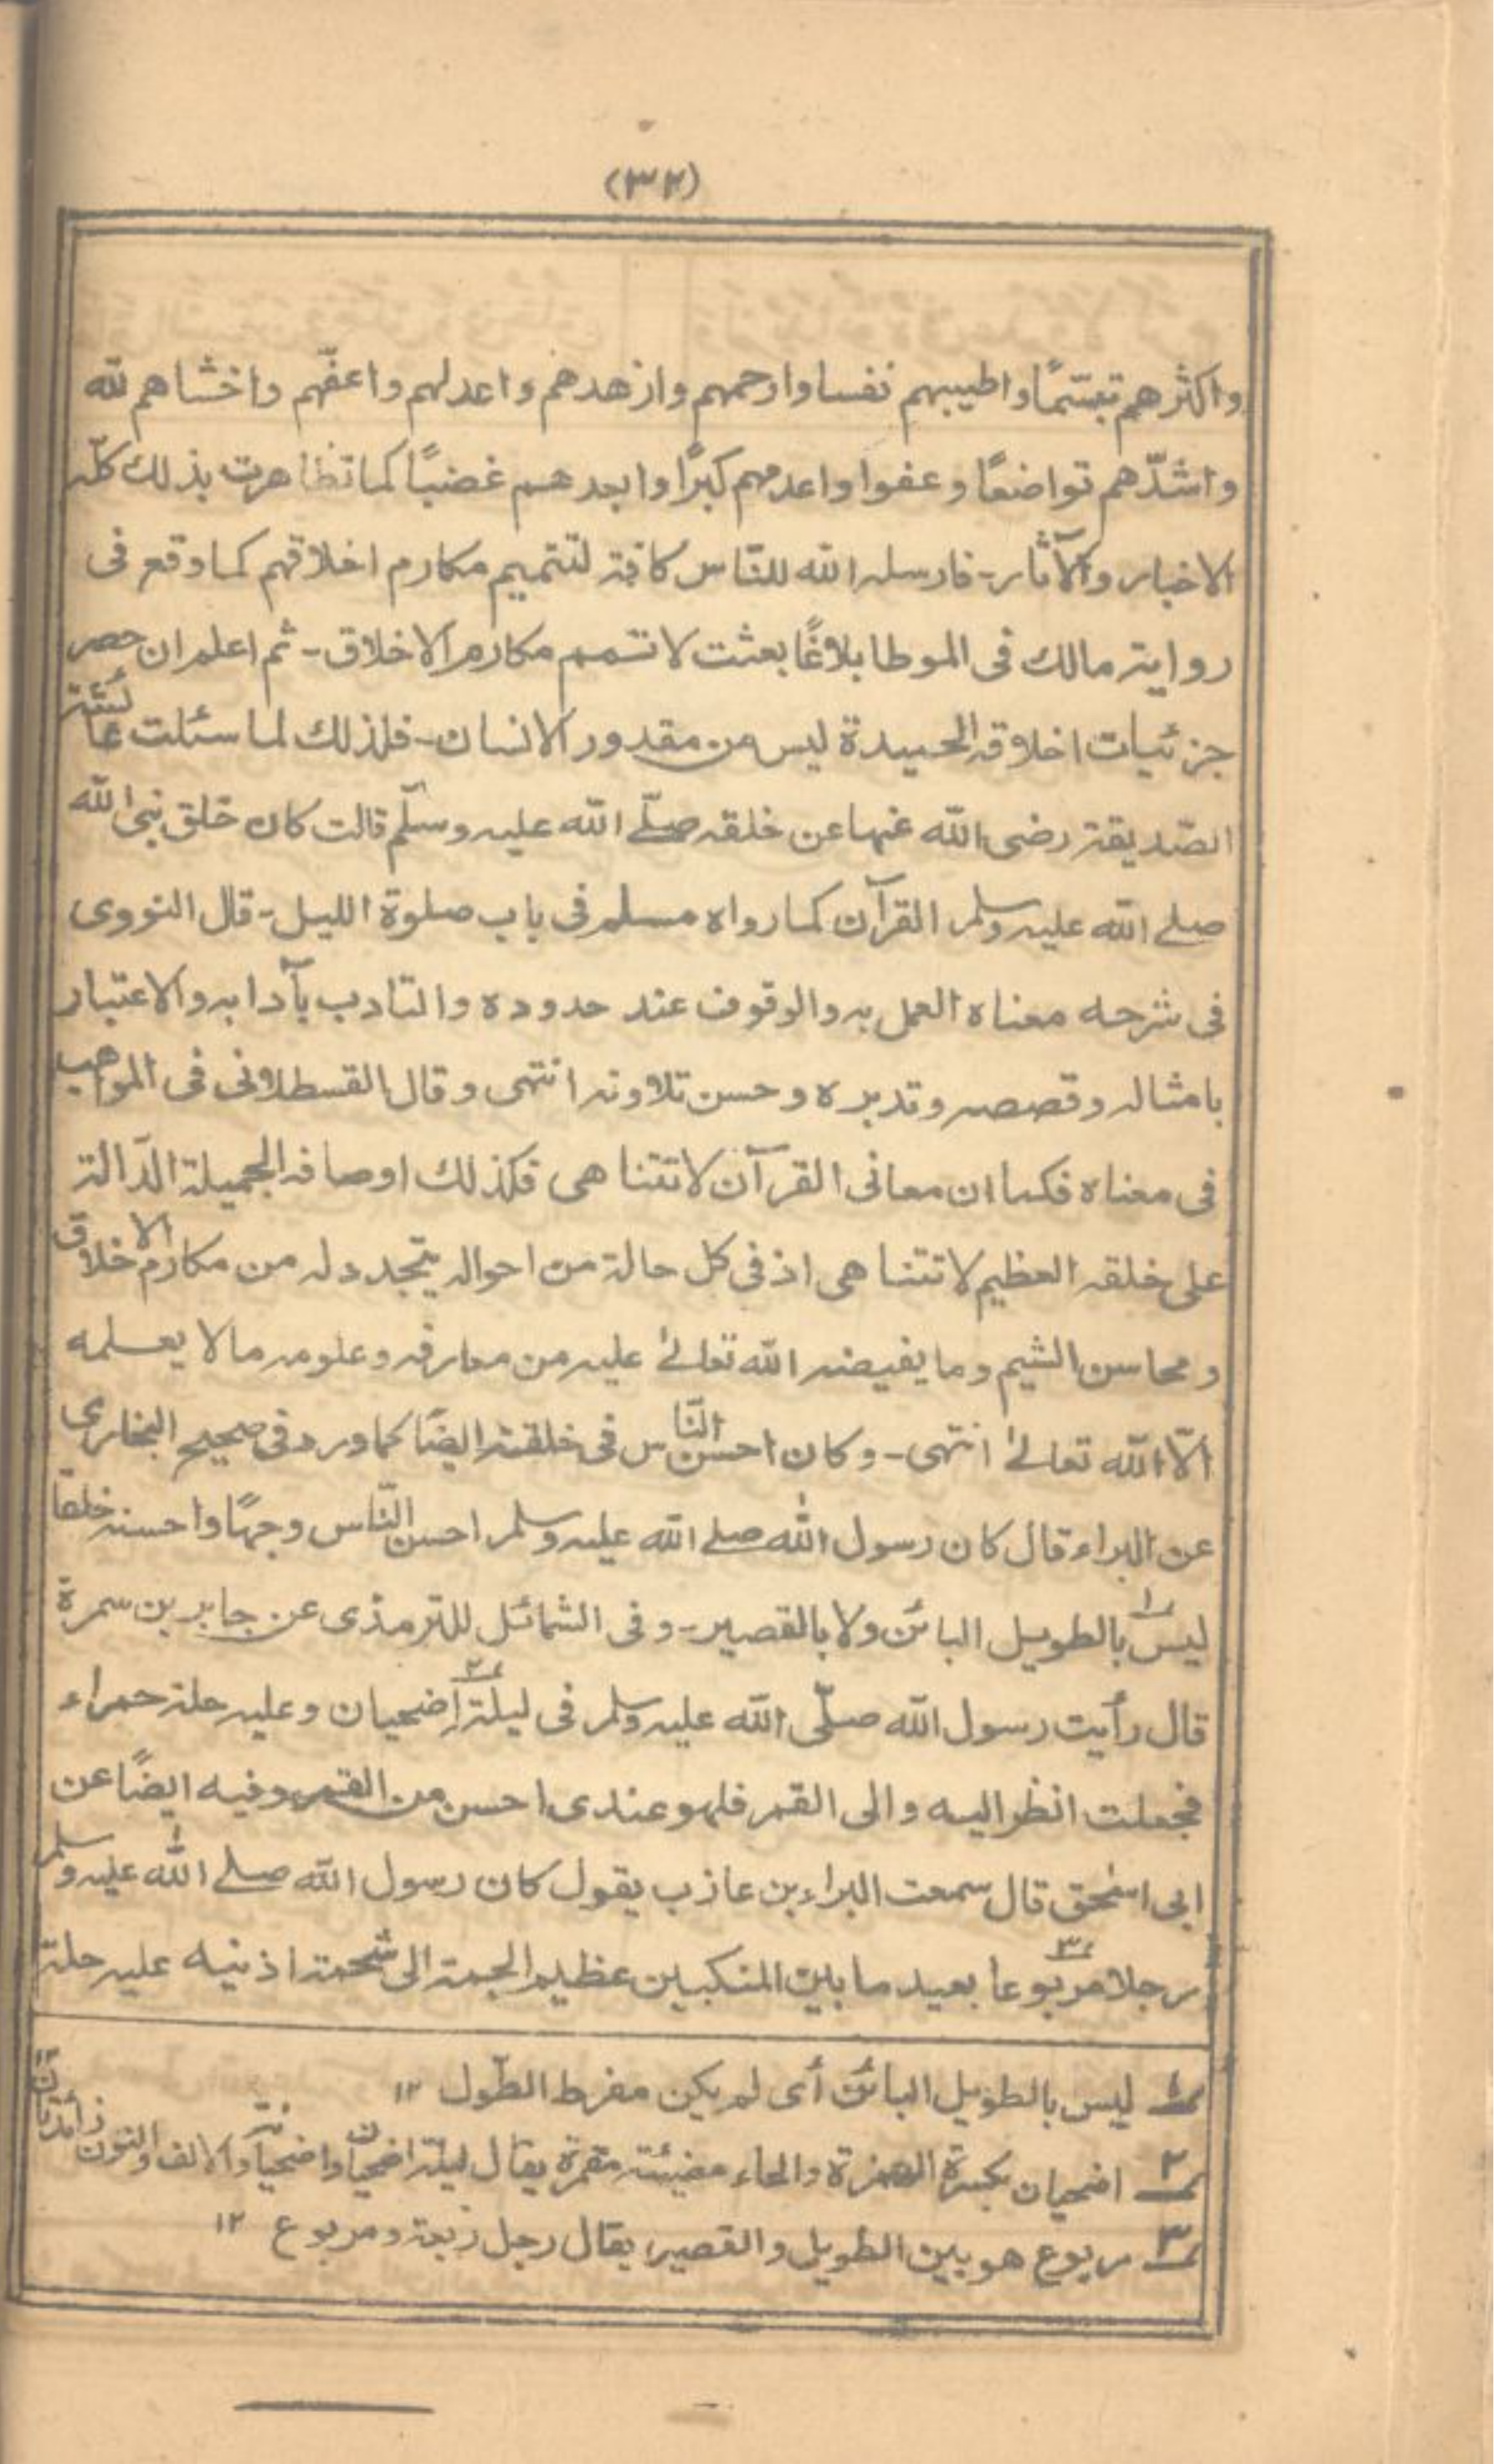 (٣٢)
واكثرهم تبسّمًا واطيبهم نفسا وارحمهم وازهدهم واعدلهم واعفّهم واخشاهم لله
واشدّهم تواضعًا وعفوا واعدمهم كبرًا وابعدهم غضبًا كما تظاهرت بذلك كلّه
الاخبار والآثار۔ فارسله الله للنّاس كافة لتتميم مكارم اخلاقهم كما وقع فى
رواية مالك فى الموطا بلاغًا بعثت لاتمم مكارم الاخلاق۔ ثم اعلم ان حصر
جزئيات اخلاقه الحميدة ليس من مقدور الانسان۔ فلذلك لما سئلت عائشة
الصّديقة رضى الله عنها عن خلقه صلّے الله عليه وسلّم قالت كان خلق نبى الله
صلے الله عليه وسلم القرآن كما رواه مسلم فى باب صلوة الليل۔ قال النووى
فى شرحه معناه العمل به والوقوف عند حدوده والتادب بآدابه والاعتبار
بامثاله وقصصه وتدبره وحسن تلاوته انتهى وقال القسطلانى فى المواهب
فى معناه فكما ان معانى القرآن لا تتناهى فكذلك اوصافه الجميلة الدّالة
على خلقه العظيم لا تتناهى اذ فى كل حالة من احواله يتجدد له من مكارم الاخلاق
ومحاسن الشيم وما يفيضه الله تعالےٰ عليه من معارفه وعلومه مالا يعلمه
الّا الله تعالےٰ انتهى۔ وكان احسن النّاس فى خلقته ايضًا كما ورد فى صحيح البخارى
عن البراء قال كان رسول الله صلے الله عليه وسلم احسن النّاس وجهًا واحسنه خلقا
ليس١ بالطويل البائن ولا بالقصير۔ وفى الشمائل للترمذى عن جابر بن سمرة
قال رأيت رسول الله صلّى الله عليه وسلم فى ليلة٢ اِضحيان وعليه حلة حمراء
فجعلت انظر اليه والى القمر فلهو عندى احسن من القمر وفيه ايضًا عن
ابى اسحٰق قال سمعت البراء بن عازب يقول كان رسول الله صلے الله عليه وسلم
رجلا مربوعا٣ بعيد ما بين المنكبين عظيم الجمة الى شحمة اذنيه عليه حلة
١ ليس بالطويل البائن أى لم يكن مفرط الطّول ١٢
٢ اضحيان بكسرة الهمزة والحاء مضيئة مقمرة يقال ليلة اضحيان واضحيانة والالف والنون زائدتان ١٢
٣ مربوع هو بين الطويل والقصير يقال رجل ربعة ومربوع ١٢